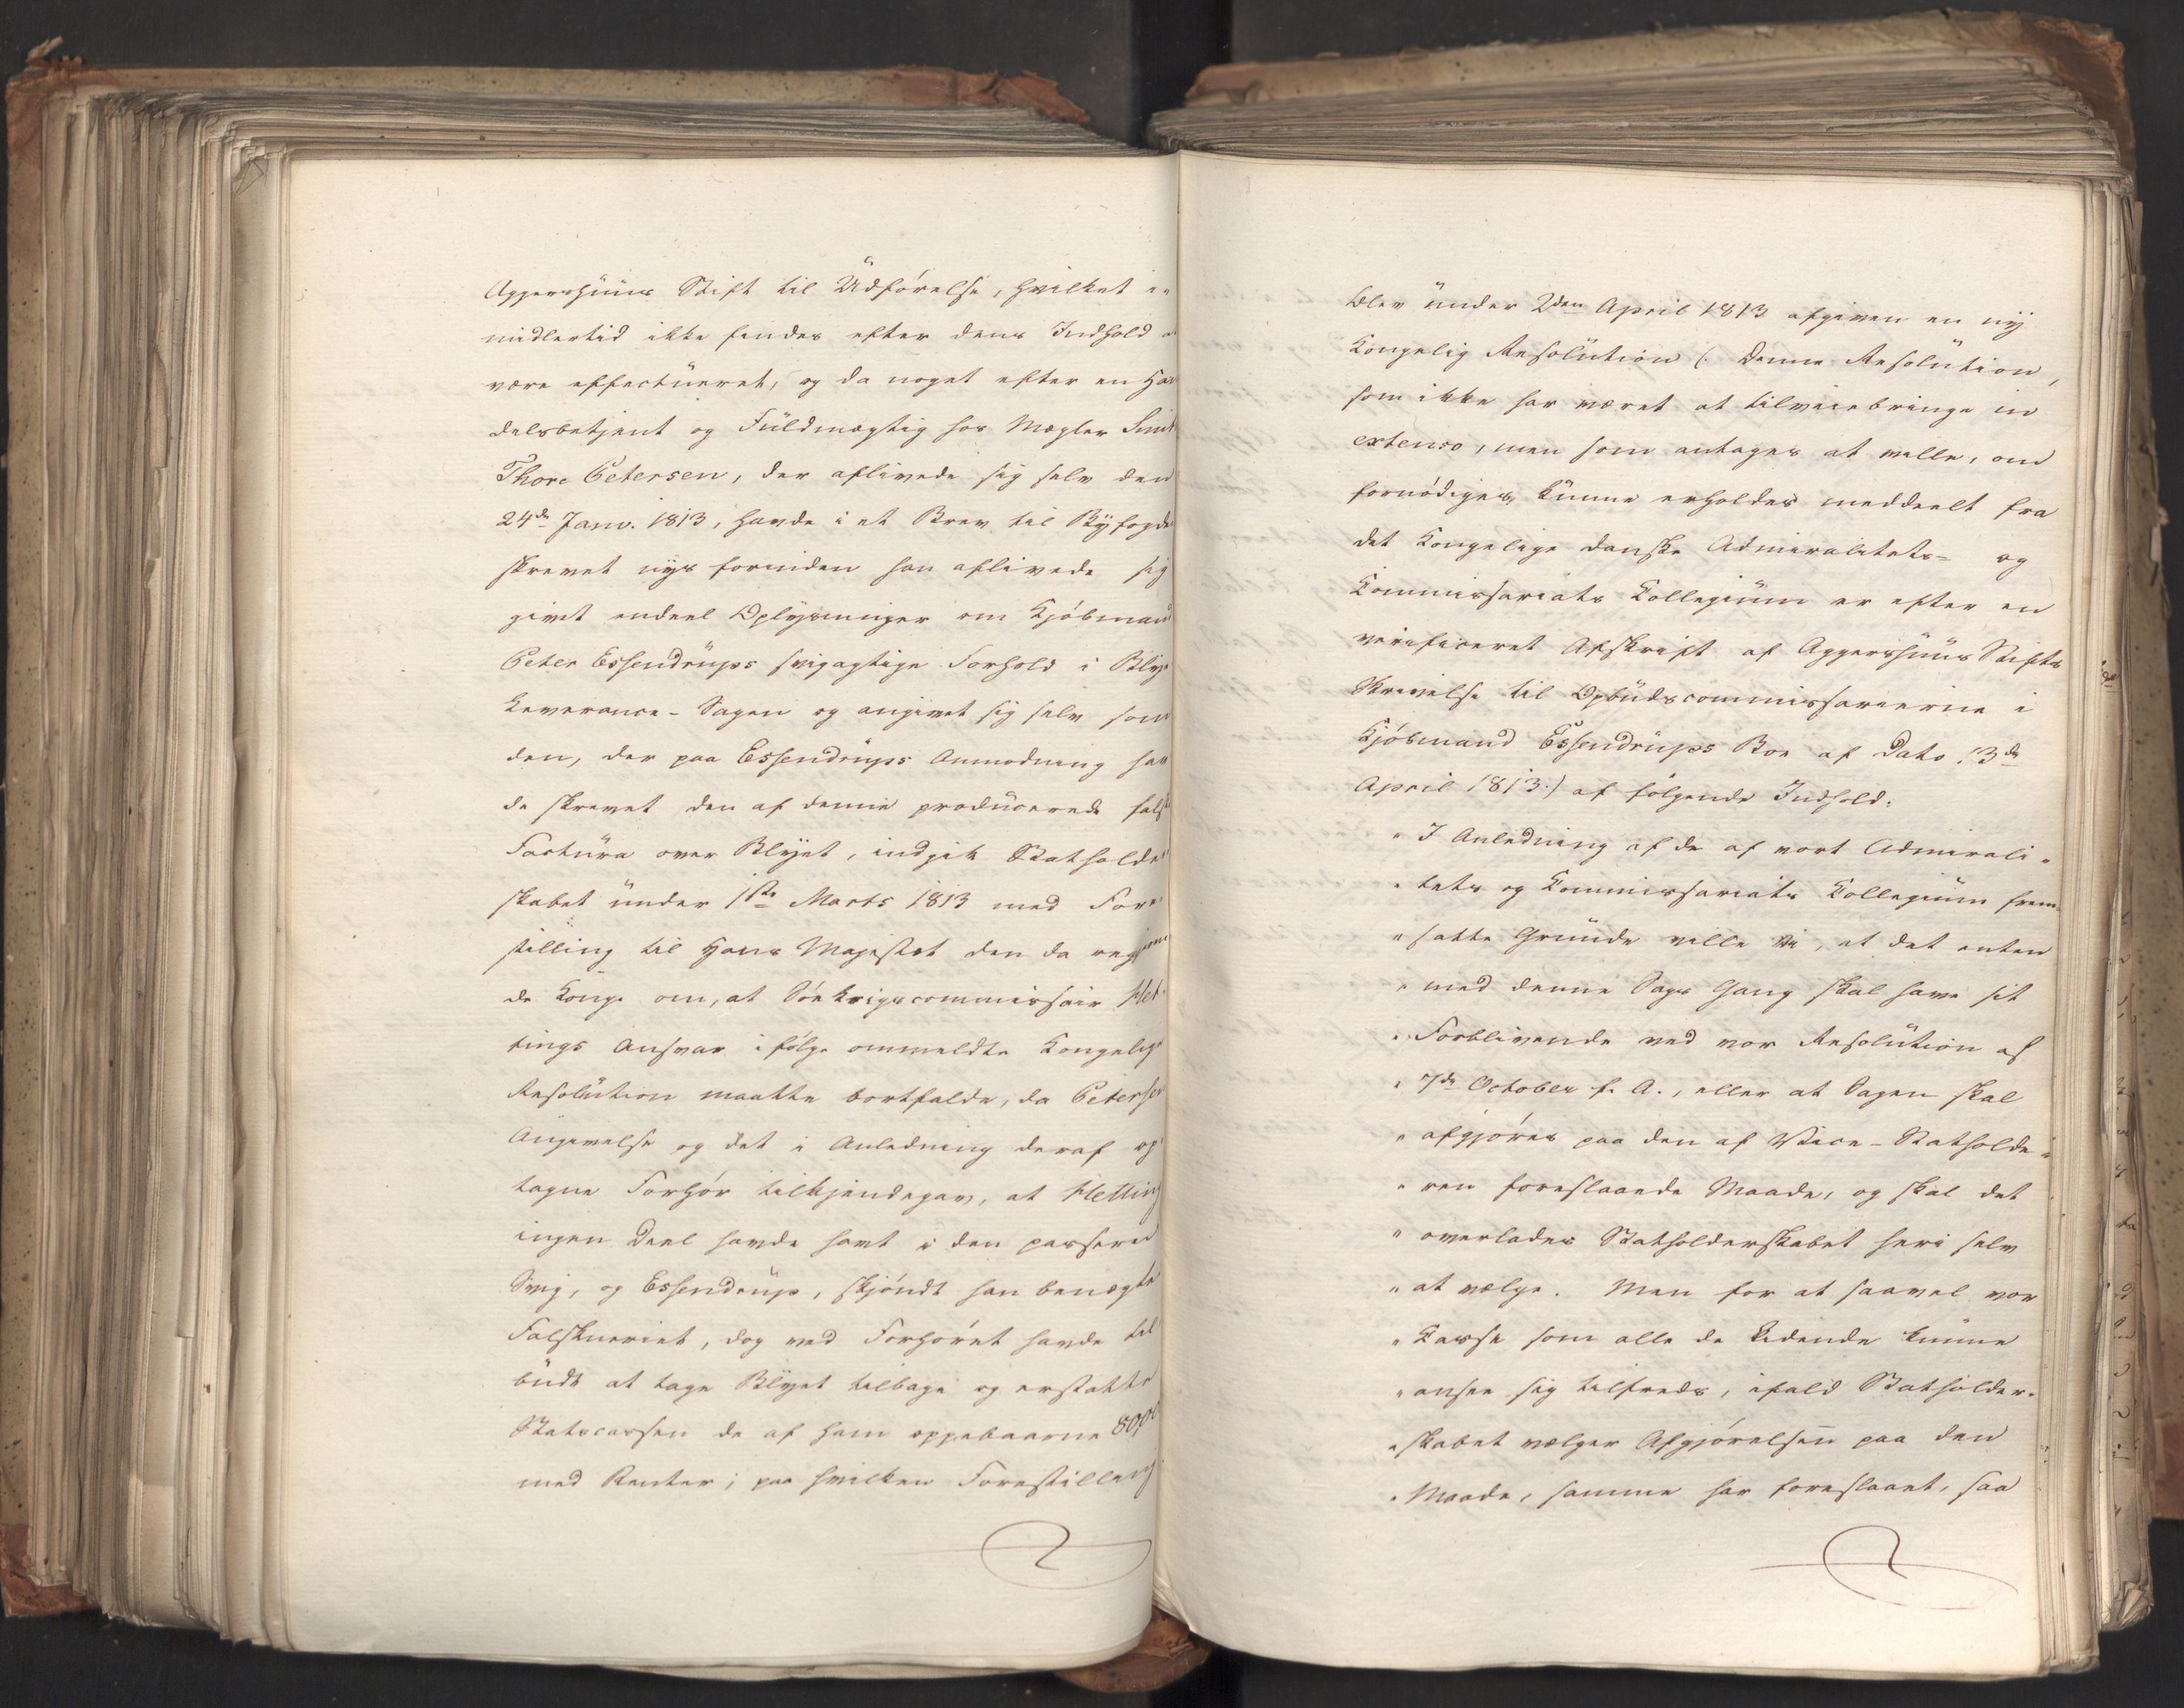 Aggershuus Stift til Udførelse, hvilket i-
midlertid ikke findes efter dens Indhold a
være effectueret, og da noget efter en Han
delsbetjent og Fuldmægtig hos Mægler Smit
Thore Petersen, der aflivede sig selv den
24de Janv. 1813, havde i et Brev til Byfogde
skrevet nys forinden han aflivede sig
givet endeel Oplysninger om Kjøbmand
Peter Essendrups svigagtige Forhold i Blye
Leverance-Sagen og angivet sig selv som
den, der paa Essendrups Anmodning hav
de skrevet den af denne producerede fals
Factura over Blyet, indgik Statholder
skabet under 1ste Marts 1813 med Fore
stilling til Hans Majestæt den da regjeren
de Konge om, at Søekrigscommissair Het-
tings Ansvar ifølge ommeldte Kongelige
Resolution maatte bortfalde, da Petersen
Angivelse og det i Anledning deraf op
tagne Forhør tilkjendegav, at Hetting
ingen Deel havde havt i den passered
Svig, og Essendrup, skjøndt han benægte
Falskneriet, dog ved Forhøret havde til
budt at tage Blyet tilbage og erstatte
Statscassen de af ham oppebaarne
med Renter; paa hvilken Forestilling
blev under 2den April 1813 afgiven en ny
Kongelig Resolution (: Denne Resolution,
som ikke har været at tilveiebringe in
extenso, men som antages at ville, om
fornødiges kunne erholdes meddeelt fra
det Kongelige danske Admiralitets- og
Commissariats Collegium er efter en
verificeret Afskrift af Aggershuus Stifts
Skrivelse til Opbudscommissairerne i
Kjøbmand Essendrups Boe af Dato 13de
April 1813:) af følgende Indhold:
"I Anledning af de af vort Admirali-
"tets og Commissariats Collegium frem-
"satte Grunde ville Vi, at det enten
"med denne Sags Gang skal have sit
"Forblivende ved vor Resolution af
"7de October f. A., eller at Sagen skal
"afgjøres paa den af Vice-Statholde-
"ren foreslaaede Maade, og skal det
"overlades Statholderskabet heri selv
"at vælge. Men for at saavel vor
"Casse som alle de Lidende kunne
"ansee sig tilfreds, ifald Statholder-
"skabet vælger Afgjørelsen paa den
"Maade, samme har foreslaaet, saa